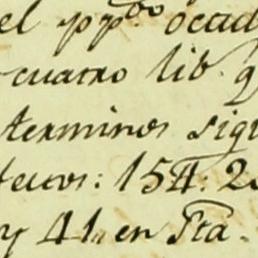 el pp.^do ocad
cuatro lib. q
terminos sigu
tecos: 154: 2
y 41,, en Sta.